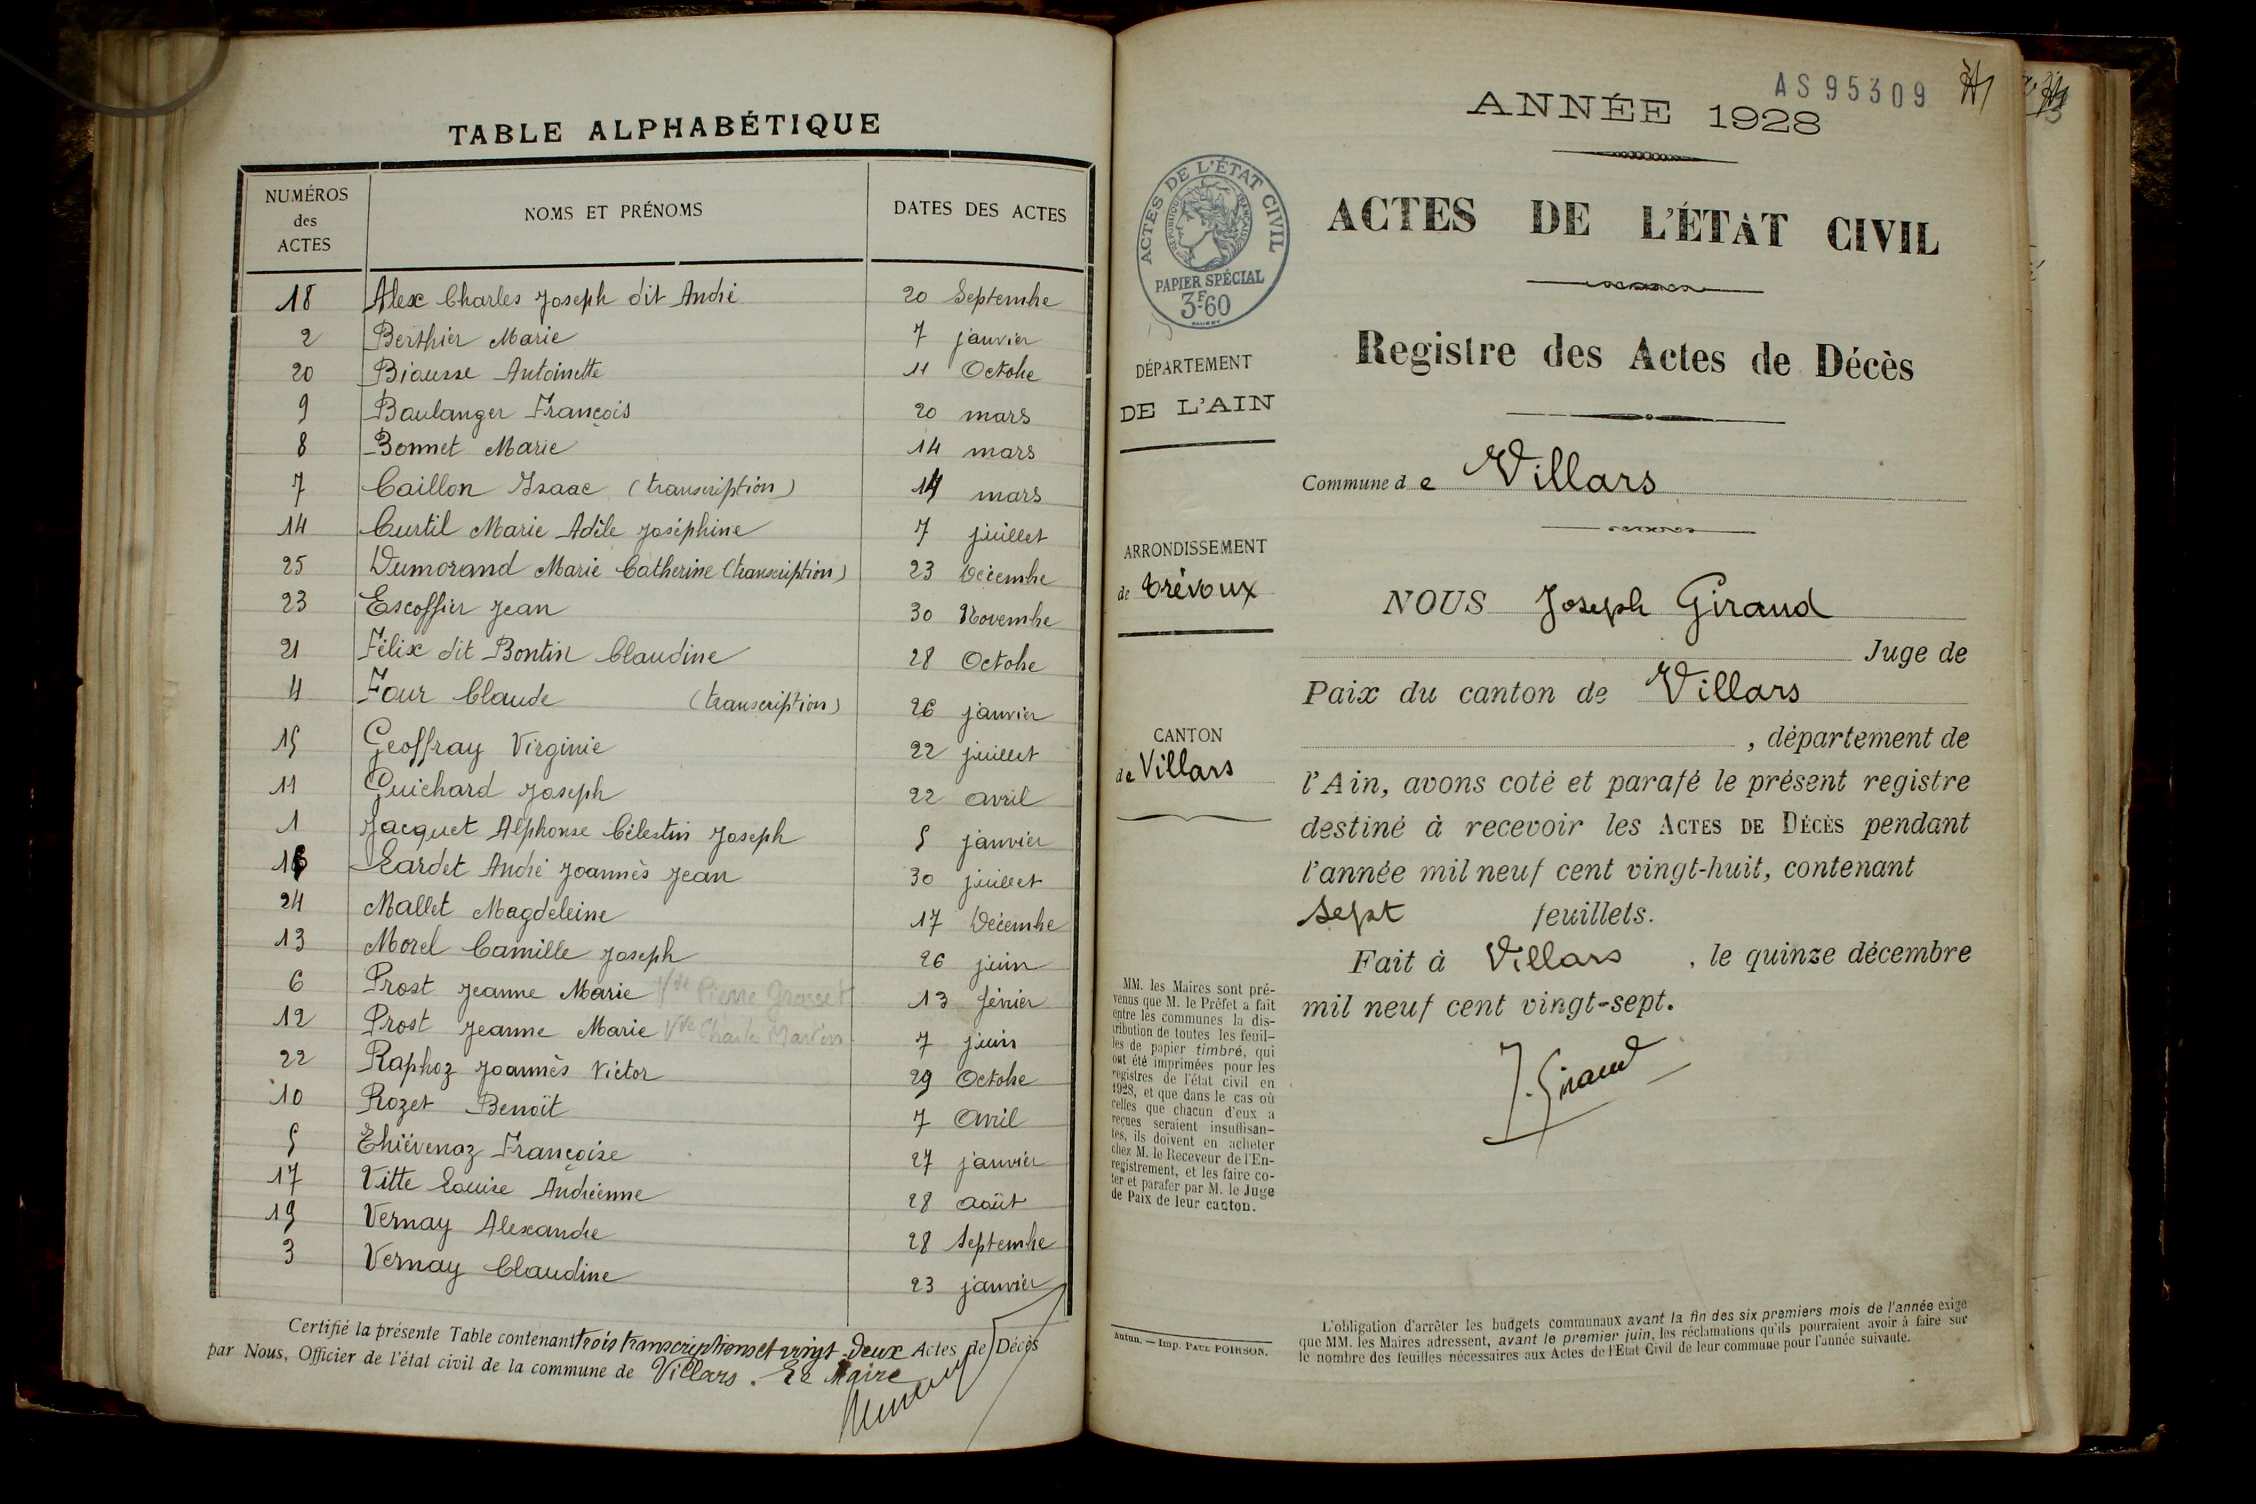 TABLE ALPHABÉTIQUE
NUMÉROS des ACTES NOMS ET PRÉNOMS DATES DES ACTES
18 Alex Charles Joseph dit André 20 Septembre
2 Berthier Marie 7 janvier
20 Biausse Antoinette 11 Octobre
9 Baulanger François 20 mars
8 Bonnet Marie 14 mars
7 Caillon Isaac (transcription) 14 mars
14 Curtil Marie Adèle Joséphine 7 juillet
25 Dumorand Marie Catherine (transcription) 23 Décembre
23 Escoffier Jean 30 Novembre
21 Félix dit Bontin Claudine 28 Octobre
4 Four Claude (transcription) 26 janvier
15 Geoffray Virginie 22 juillet
11 Guichard Joseph 22 avril
1 Jacquet Alphonse Célestin Joseph 5 janvier
16 Lardet André Joannès Jean 30 juillet
24 Mallet Magdeleine 17 Décembre
13 Morel Camille Joseph 26 juin
6 Prost Jeanne Marie Vve Pierre Grosset 13 février
12 Prost Jeanne Marie Vve Charles Martin 7 juin
22 Raphoz Joannès Victor 29 Octobre
10 Rozet Benoît 7 Avril
5 Thiévenaz Françoise 27 janvier
17 Vitte Louise Andréenne 28 Août
19 Vernay Alexandre 28 Septembre
3 Vernay Claudine 23 janvier
Certifié la présente Table contenant trois transcriptions et vingt-deux Actes de Décès
par Nous, Officier de l'état civil de la commune de Villars. Le Maire
AS95309
ANNÉE 1928
ACTES DE L'ÉTAT CIVIL
RÉPUBLIQUE FRANÇAISE
PAPIER SPÉCIAL
3F60
ACTES DE L'ÉTAT CIVIL
Registre des Actes de Décès
DÉPARTEMENT
DE L'AIN
Commune de Villars
ARRONDISSEMENT
de Trévoux
NOUS Joseph Giraud
Juge de
Paix du canton de Villars
, département de
CANTON
de Villars
l'Ain, avons coté et parafé le présent registre
destiné à recevoir les ACTES DE DÉCÈS pendant
l'année mil neuf cent vingt-huit, contenant
sept feuillets.
Fait à Villars , le quinze décembre
mil neuf cent vingt-sept.
J. Giraud
MM. les Maires sont pré-
venus que M. le Préfet a fait
entre les communes la dis-
tribution de toutes les feuil-
les de papier timbré, qui
ont été imprimées pour les
registres de l'état civil en
1928, et que dans le cas où
celles que chacun d'eux a
reçues seraient insuffisan-
tes, ils doivent en acheter
chez M. le Receveur de l'En-
registrement, et les faire co-
ter et parafer par M. le Juge
de Paix de leur canton.
Autun. — Imp. PAUL POIRSON.
L'obligation d'arrêter les budgets communaux avant la fin des six premiers mois de l'année exige
que MM. les Maires adressent, avant le premier juin, les réclamations qu'ils pourraient avoir à faire sur
le nombre des feuilles nécessaires aux Actes de l'Etat Civil de leur commune pour l'année suivante.